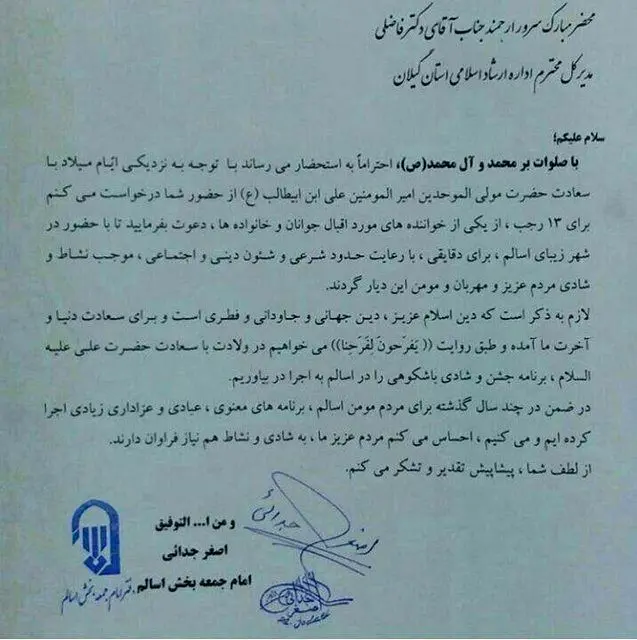 محضر مبارک سرور ارجمند جناب آقای دکتر فاضلی
مدیر کل محترم اداره ارشاد اسلامی استان گیلان
سلام علیکم؛
با صلوات بر محمد و آل محمد(ص)، احتراماً به استحضار می رساند با توجه به نزدیکی ایّام میلاد با
سعادت حضرت مولی الموحدین امیر المومنین علی ابن ابیطالب (ع) از حضور شما درخواست می کنم
برای ۱۳ رجب ، از یکی از خواننده های مورد اقبال جوانان و خانواده ها ، دعوت بفرمایید تا با حضور در
شهر زیبای اسالم ، برای دقایقی ، با رعایت حدود شرعی و شئون دینی و اجتماعی ، موجب نشاط و
شادی مردم عزیز و مهربان و مومن این دیار گردند.
لازم به ذکر است که دین اسلام عزیز ، دین جهانی و جاودانی و فطری است و برای سعادت دنیا و
آخرت ما آمده و طبق روایت (( یَفرَحونَ لِفَرَحِنا)) می خواهیم در ولادت با سعادت حضرت علی علیه
السلام ، برنامه جشن و شادی باشکوهی را در اسالم به اجرا در بیاوریم.
در ضمن در چند سال گذشته برای مردم مومن اسالم ، برنامه های معنوی ، عبادی و عزاداری زیادی اجرا
کرده ایم و می کنیم ، احساس می کنم مردم عزیز ما ، به شادی و نشاط هم نیاز فراوان دارند.
از لطف شما ، پیشاپیش تقدیر و تشکر می کنم.
و من ا... التوفیق
اصغر جدائی
امام جمعه بخش اسالم
دفتر امام جمعه بخش اسالم
اصغر جدائی